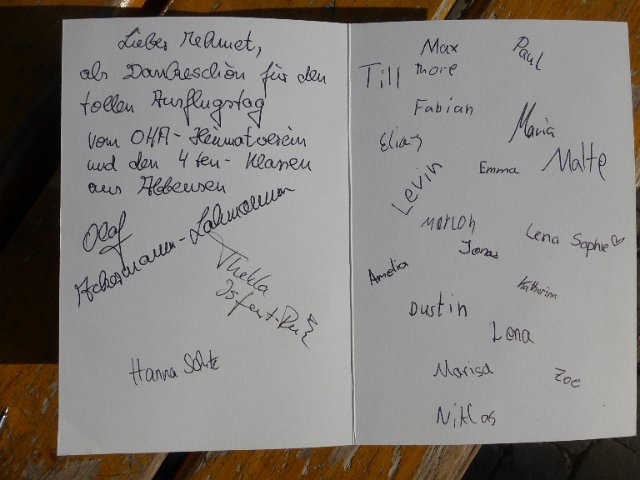 Lieber Mehmet,
als Dankeschön für den
tollen Ausflugstag
vom OHA-Heimatverein
und den 4ten-Klassen
aus Abbensen
Olaf
Ackermann-Lahmann
Thekla
Hanna
Max
Paul
Till
Thore
Fabian
Maria
Elias
Emma
Malte
Levin
Marlon
Jonas
Lena Sophie♡
Amelia
Katharina
Dustin
Lena
Marisa
Zoe
Niklas